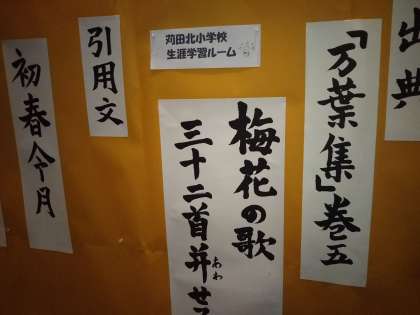 苅田北小学校
生涯学習ルーム
出典
「万葉集」巻五
梅花の歌
三十二首并せ
あわ
引用文
初春令月